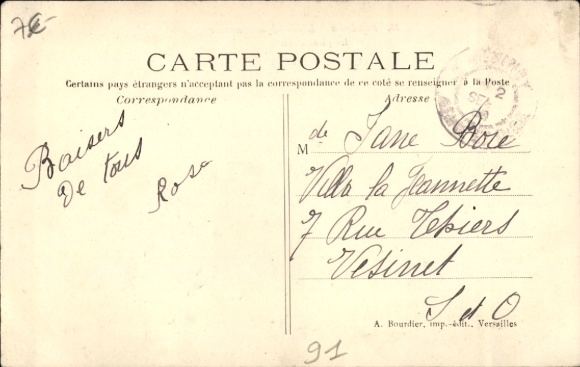 7€
CARTE POSTALE
Certains pays étrangers n'acceptant pas la correspondance de ce coté se renseigner à la Poste
Correspondance
Adresse
Baisers
de tous
Rosa
Mde Jane Boie
Villa la Jeannette
7 Rue Thiers
Vesinet
S et O
A. Bourdier, imp.-édit., Versailles
91